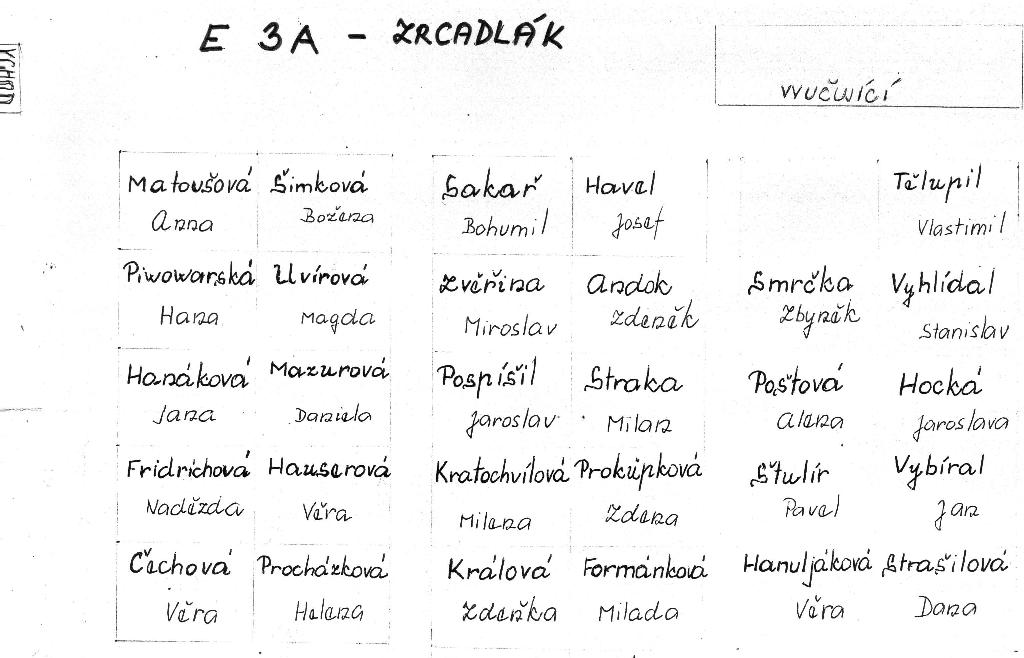 E 3A - ZRCADLÁK
VCHOD
vyučující
Matoušová Šimková Sakař Havel Tělupil
Anna Božena Bohumil Josef Vlastimil
Piwowarská Uvírová Zvěřina Andok Smrčka Vyhlídal
Hana Magda Miroslav Zdeněk Zbyněk Stanislav
Hanáková Mazurová Pospíšil Straka Poštová Hocká
Jana Daniela Jaroslav Milan Alena Jaroslava
Fridrichová Hauserová Kratochvílová Prokůpková Štulír Vybíral
Naděžda Věra Milena Zdena Pavel Jan
Čechová Procházková Králová Formánková Hanuljáková Strašilová
Věra Helena Zdeňka Milada Věra Dana